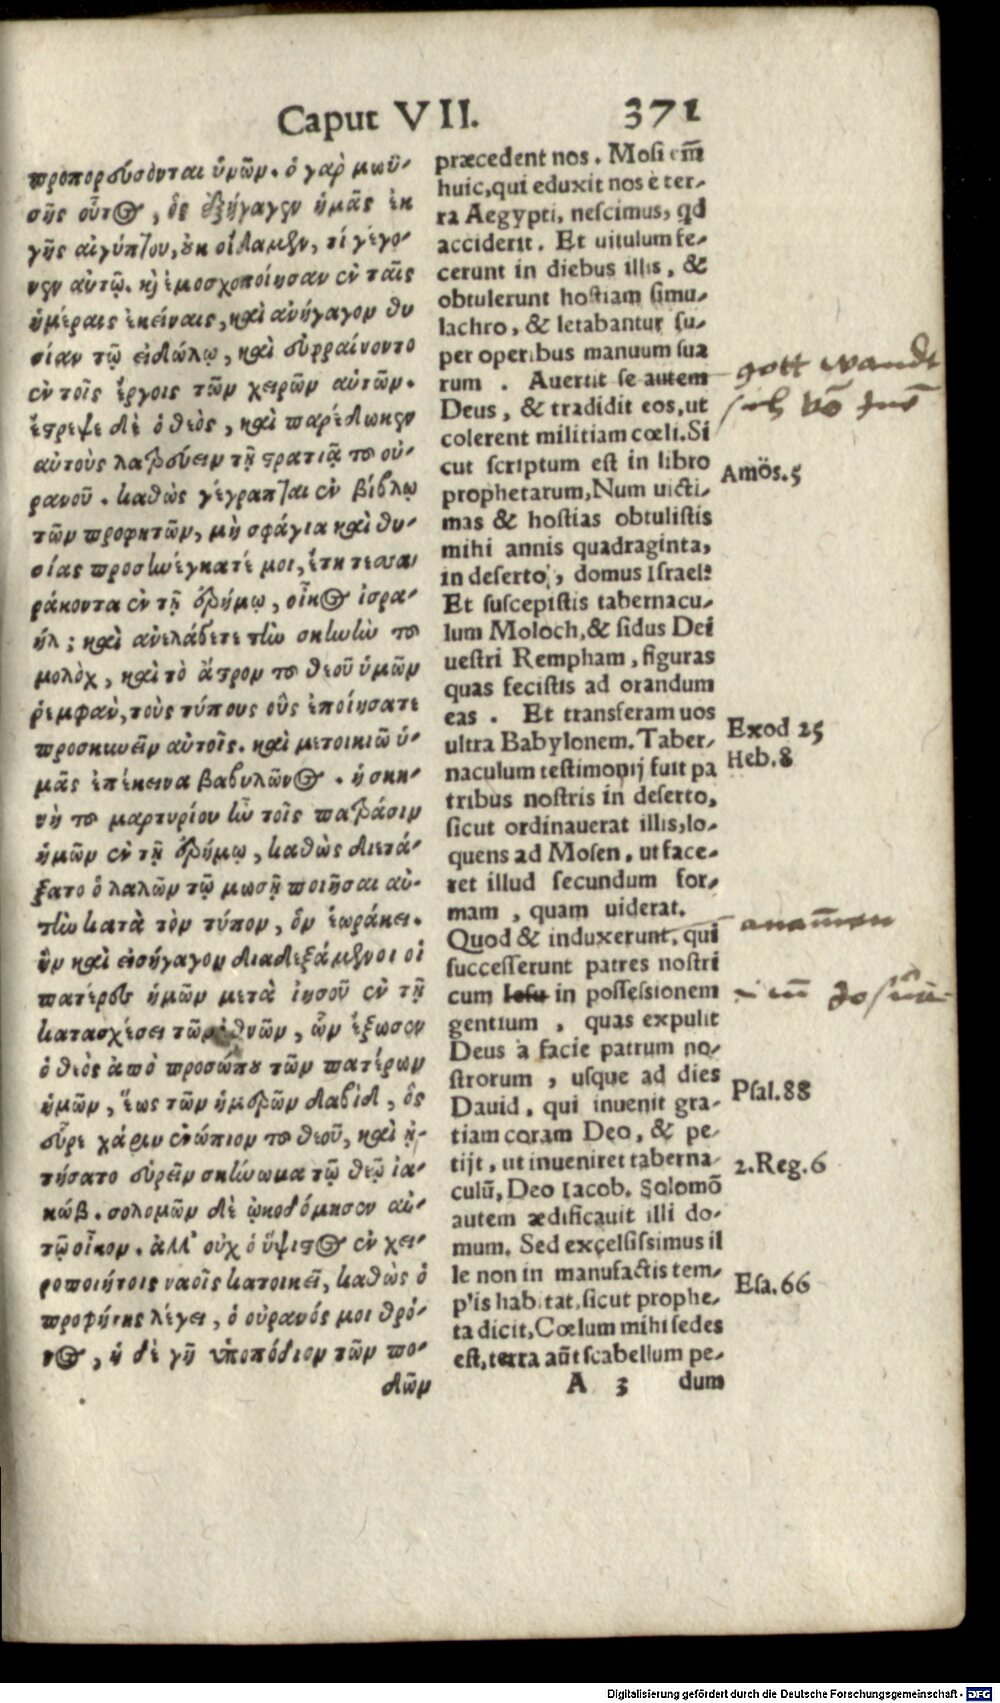 Caput VII. 371
προπορεύσονται ὑμῶν. ὁ γαρ μωϋ-
σῆς οὗτος, ὃς ἐξήγαγεν ἡμᾶς ἐκ
γῆς αἰγύπτου, οὐκ οἴδαμεν, τί γέγο-
νεν αὐτῷ. καὶ ἐμοσχοποίησαν ἐν ταῖς
ἡμέραις ἐκείναις, καὶ ἀνήγαγον θυ
σίαν τῷ εἰδώλῳ, καὶ εὐφραίνοντο
ἐν τοῖς ἔργοις τῶν χειρῶν αὐτῶν.
ἔστρεψε δὲ ὁ θεὸς, καὶ παρέδωκεν
αὐτοὺς λατρεύειν τῇ στρατιᾷ τοῦ οὐ-
ρανοῦ. καθὼς γέγραπται ἐν βίβλῳ
τῶν προφητῶν, μὴ σφάγια καὶ θυ-
σίας προσηνέγκατέ μοι, ἔτη τεσσα
ράκοντα ἐν τῇ ἐρήμῳ, οἶκος ἰσρα-
ήλ; καὶ ἀνελάβετε τὴν σκηνὴν τοῦ
μολὸχ, καὶ τὸ ἄστρον τοῦ θεοῦ ὑμῶν
ῥεμφαὺ, τοὺς τύπους οὓς ἐποίησατε
προσκυνεῖν αὐτοῖς. καὶ μετοικιῶ ὑ-
μᾶς ἐπέκεινα βαβυλῶνος. ἡ σκη-
νὴ τοῦ μαρτυρίου ἦν τοῖς πατράσιν
ἡμῶν ἐν τῇ ἐρήμῳ, καθὼς διετά-
ξατο ὁ λαλῶν τῷ μωσῇ ποιῆσαι αὐ-
τὴν κατὰ τὸν τύπον, ὃν ἑωράκει.
ἣν καὶ εἰσήγαγον διαδεξάμενοι οἱ
πατέρες ἡμῶν μετὰ ἰησοῦ ἐν τῇ
κατασχέσει τῶν ἐθνῶν, ὧν ἔξωσεν
ὁ θεὸς ἀπὸ προσώπου τῶν πατέρων
ἡμῶν, ἕως τῶν ἡμερῶν δαβὶδ, ὃς
εὗρε χάριν ἐνώπιον τοῦ θεοῦ, καὶ ᾐ-
τήσατο εὑρεῖν σκήνωμα τῷ θεῷ ἰα-
κώβ. σολομῶν δὲ ᾠκοδόμησεν αὐ-
τῷ οἶκον. ἀλλ' οὐχ ὁ ὕψιστος ἐν χει-
ροποιήτοις ναοῖς κατοικεῖ, καθὼς ὁ
προφήτης λέγει, ὁ οὐρανός μοι θρό-
νος, ἡ δὲ γῆ ὑποπόδιον τῶν πο-
δῶν
præcedent nos. Mosi em̃
huic, qui eduxit nos è ter-
ra Aegypti, nescimus, qd
acciderit. Et uitulum fe-
cerunt in diebus illis, &
obtulerunt hostiam simu-
lachro, & letabantur su-
per operibus manuum sua
rum. Auertit se autem
Deus, & tradidit eos, ut
colerent militiam cœli. Si
cut scriptum est in libro
prophetarum, Num uicti-
mas & hostias obtulistis
mihi annis quadraginta,
in deserto, domus Israel?
Et suscepistis tabernacu-
lum Moloch, & sidus Dei
uestri Rempham, figuras
quas fecistis ad orandum
eas. Et transferam uos
ultra Babylonem. Taber-
naculum testimonij fuit pa
tribus nostris in deserto,
sicut ordinauerat illis, lo-
quens ad Mosen, ut face-
ret illud secundum for-
mam, quam uiderat.
Quod & induxerunt, qui
successerunt patres nostri
cum Iesu in possessionem
gentium, quas expulit
Deus à facie patrum no-
strorum, usque ad dies
Dauid, qui inuenit gra-
tiam coram Deo, & pe-
tijt, ut inueniret taberna-
culũ, Deo Iacob. Solomõ
autem ædificauit illi do-
mum. Sed excelsissimus il
le non in manufactis tem-
plis habitat, sicut prophe-
ta dicit, Cœlum mihi sedes
est, terra aũt scabellum pe-
A 3 dum
gott wandt
sich võ
Amös. 5
Exod 25
Heb. 8
Josua
Psal. 88
2. Reg. 6
Esa. 66
Digitalisierung gefördert durch die Deutsche Forschungsgemeinschaft - DFG